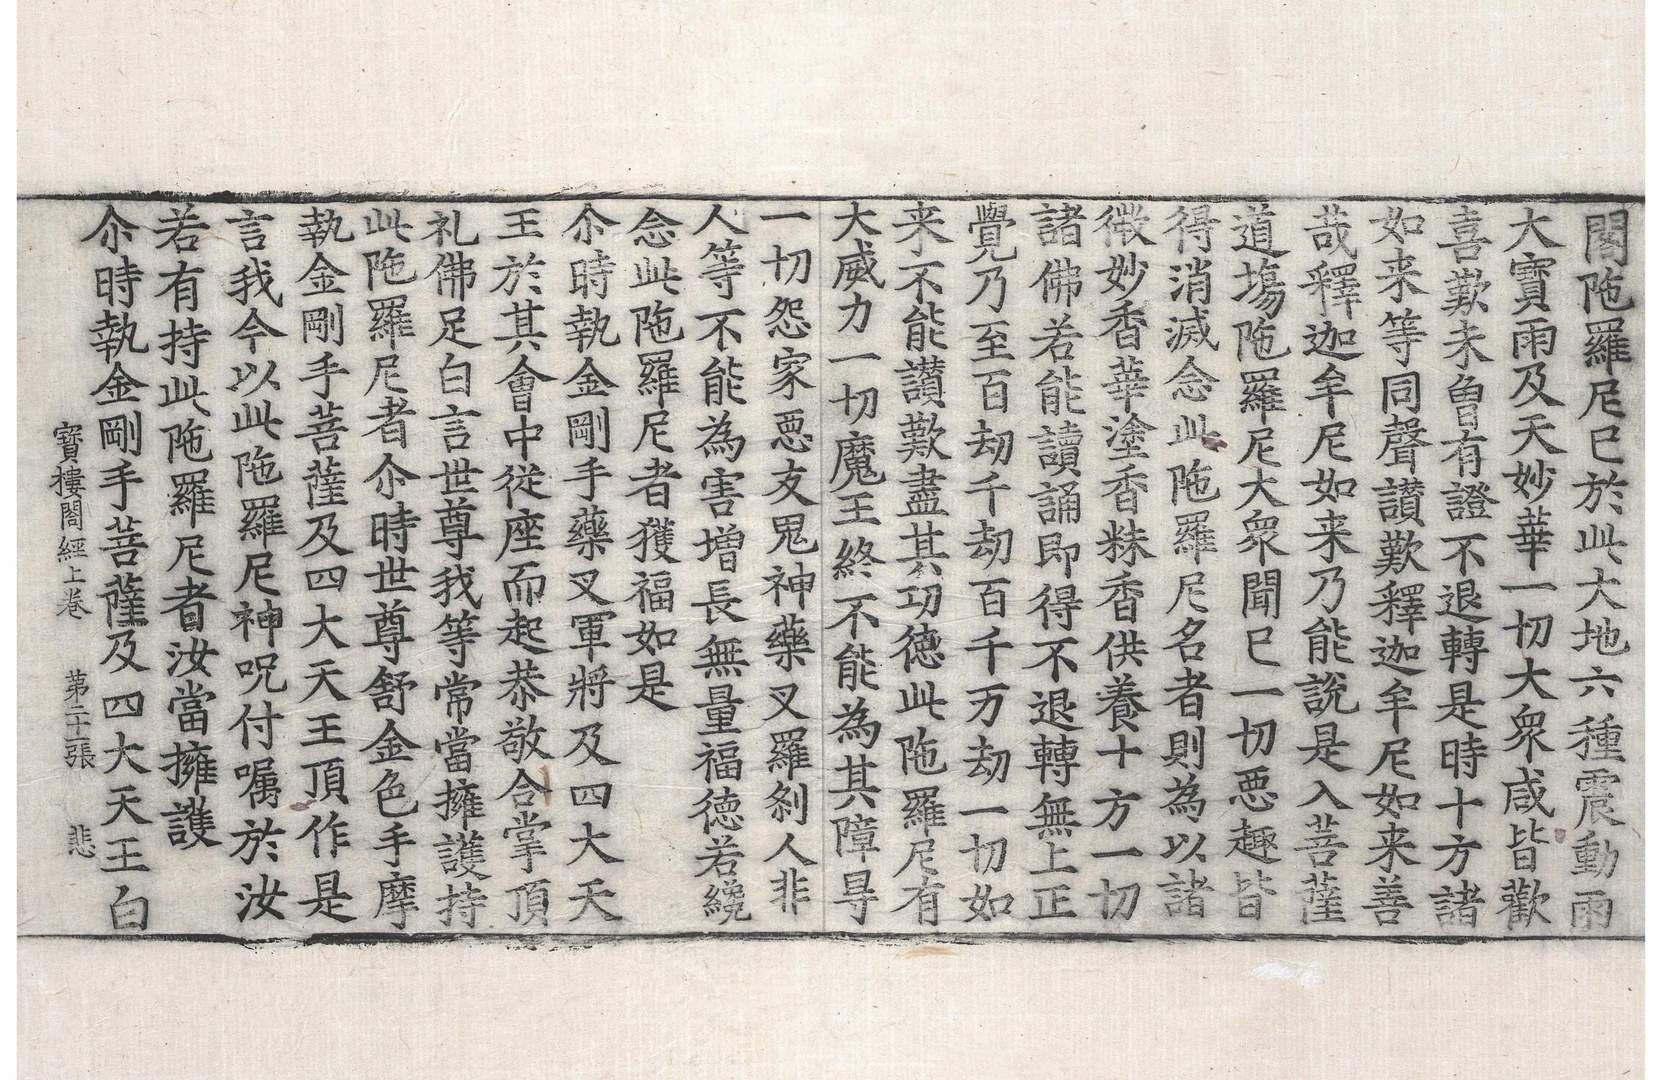 閣陁羅尼已於此大地六種震動雨
大寶雨及天妙華一切大衆咸皆歡
喜歎未曾有證不退轉是時十方諸
如来等同聲讃歎釋迦牟尼如来善
哉釋迦牟尼如来乃能說是入菩薩
道塲陁羅尼大衆聞已一切惡趣皆
得消滅念此陁羅尼名者則為以諸
微妙香華塗香香粖香供養十方一切
諸佛若能讀誦即得不退轉無上正
覺乃至百劫千劫百千万劫一切如
来不能讃歎盡其功德此陁羅尼有
大威力一切魔王終不能為其障㝵
一切怨家惡友鬼神藥叉羅剎人非
人等不能為害增長無量福德若纔
念此陁羅尼者獲福如是
尒時執金剛手藥叉軍將及四大天
王於其會中從座而起恭敬合掌頂
礼佛足白言世尊我等常當擁護持
此陁羅尼者尒時世尊舒金色手摩
執金剛手菩薩及四大天王頂作是
言我今以此陁羅尼神呪付囑於汝
若有持此陁羅尼者汝當擁護
尒時執金剛手菩薩及四大天王白
寶樓閣經上卷 第二十張 悲